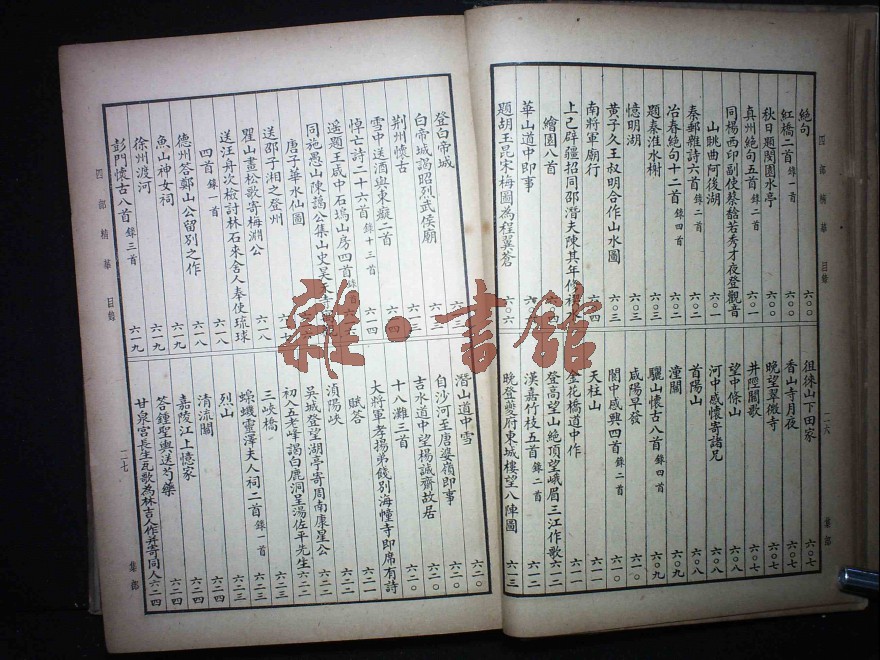 四部精華 目錄
絕句 六〇〇
紅橋二首 錄一首 六〇〇
秋日題閔園水亭 六〇〇
真州絕句五首 錄二首 六〇一
同楊西印副使蔡餄若秀才夜登觀音
山眺曲阿後湖 六〇一
秦郵雜詩六首 錄二首 六〇二
冶春絕句十二首 錄四首 六〇二
題秦淮水榭 六〇三
憶明湖 六〇三
黃子久王叔明合作山水圖 六〇三
南將軍廟行 六〇四
上巳辟疆招同邵潛夫陳其年修禊
繪園八首
華山道中即事
題胡玉昆宋梅圖為程翼蒼 六〇六
徂徠山下田家 六〇七
香山寺月夜 六〇七
晚望翠微寺 六〇七
井陘關歌 六〇七
望中條山 六〇八
河中感懷寄諸兄 六〇八
首陽山 六〇八
潼關 六〇九
驪山懷古八首 錄四首 六〇九
咸陽早發 六一〇
閣中感興四首 錄二首 六一〇
天柱山 六一一
金花橋道中作 六一一
登高望山絕頂望峨眉三江作歌 六一二
漢嘉竹枝五首 錄二首 六一二
晚登夔府東城樓望八陣圖 六一三
一二六
集部
登白帝城
白帝城謁昭烈武侯廟 六一三
荊州懷古 六一三
雪中送酒與東癡二首 六一四
悼亡詩二十六首 錄十三首 六一四
遥題王咸中石塢山房四首 錄
同施愚山陳謁公集山史昊天寺
唐子華水仙圖
送邵子湘之登州 六一七
瞿山畫松歌寄梅淵公 六一八
送汪舟次檢討林石來舍人奉使琉球
四首 錄一首 六一八
德州答鄭山公留別之作 六一八
魚山神女祠 六一九
徐州渡河 六一九
彭門懷古八首 錄三首 六一九
潛山道中雪 六二〇
自沙河至唐婆嶺即事 六二〇
吉水道中望楊誠齋故居 六二〇
十八灘三首 六二一
大將軍孝揚弟餞別海幢寺即席有詩
賦答 六二一
湞陽峽 六二二
吳城登望湖亭寄周南康星公 六二二
初入五老峰謁白鹿洞呈湯佐平先生 六二二
三峽橋 六二三
蟂磯靈澤夫人祠二首 錄一首 六二三
烈山 六二三
清流關 六二四
嘉陵江上憶家 六二四
答鍾聖輿送芍藥 六二四
甘泉宮長生瓦歌為林吉人作并寄同人 六二四
四部精華 目錄
一二七
集部
雜·書館